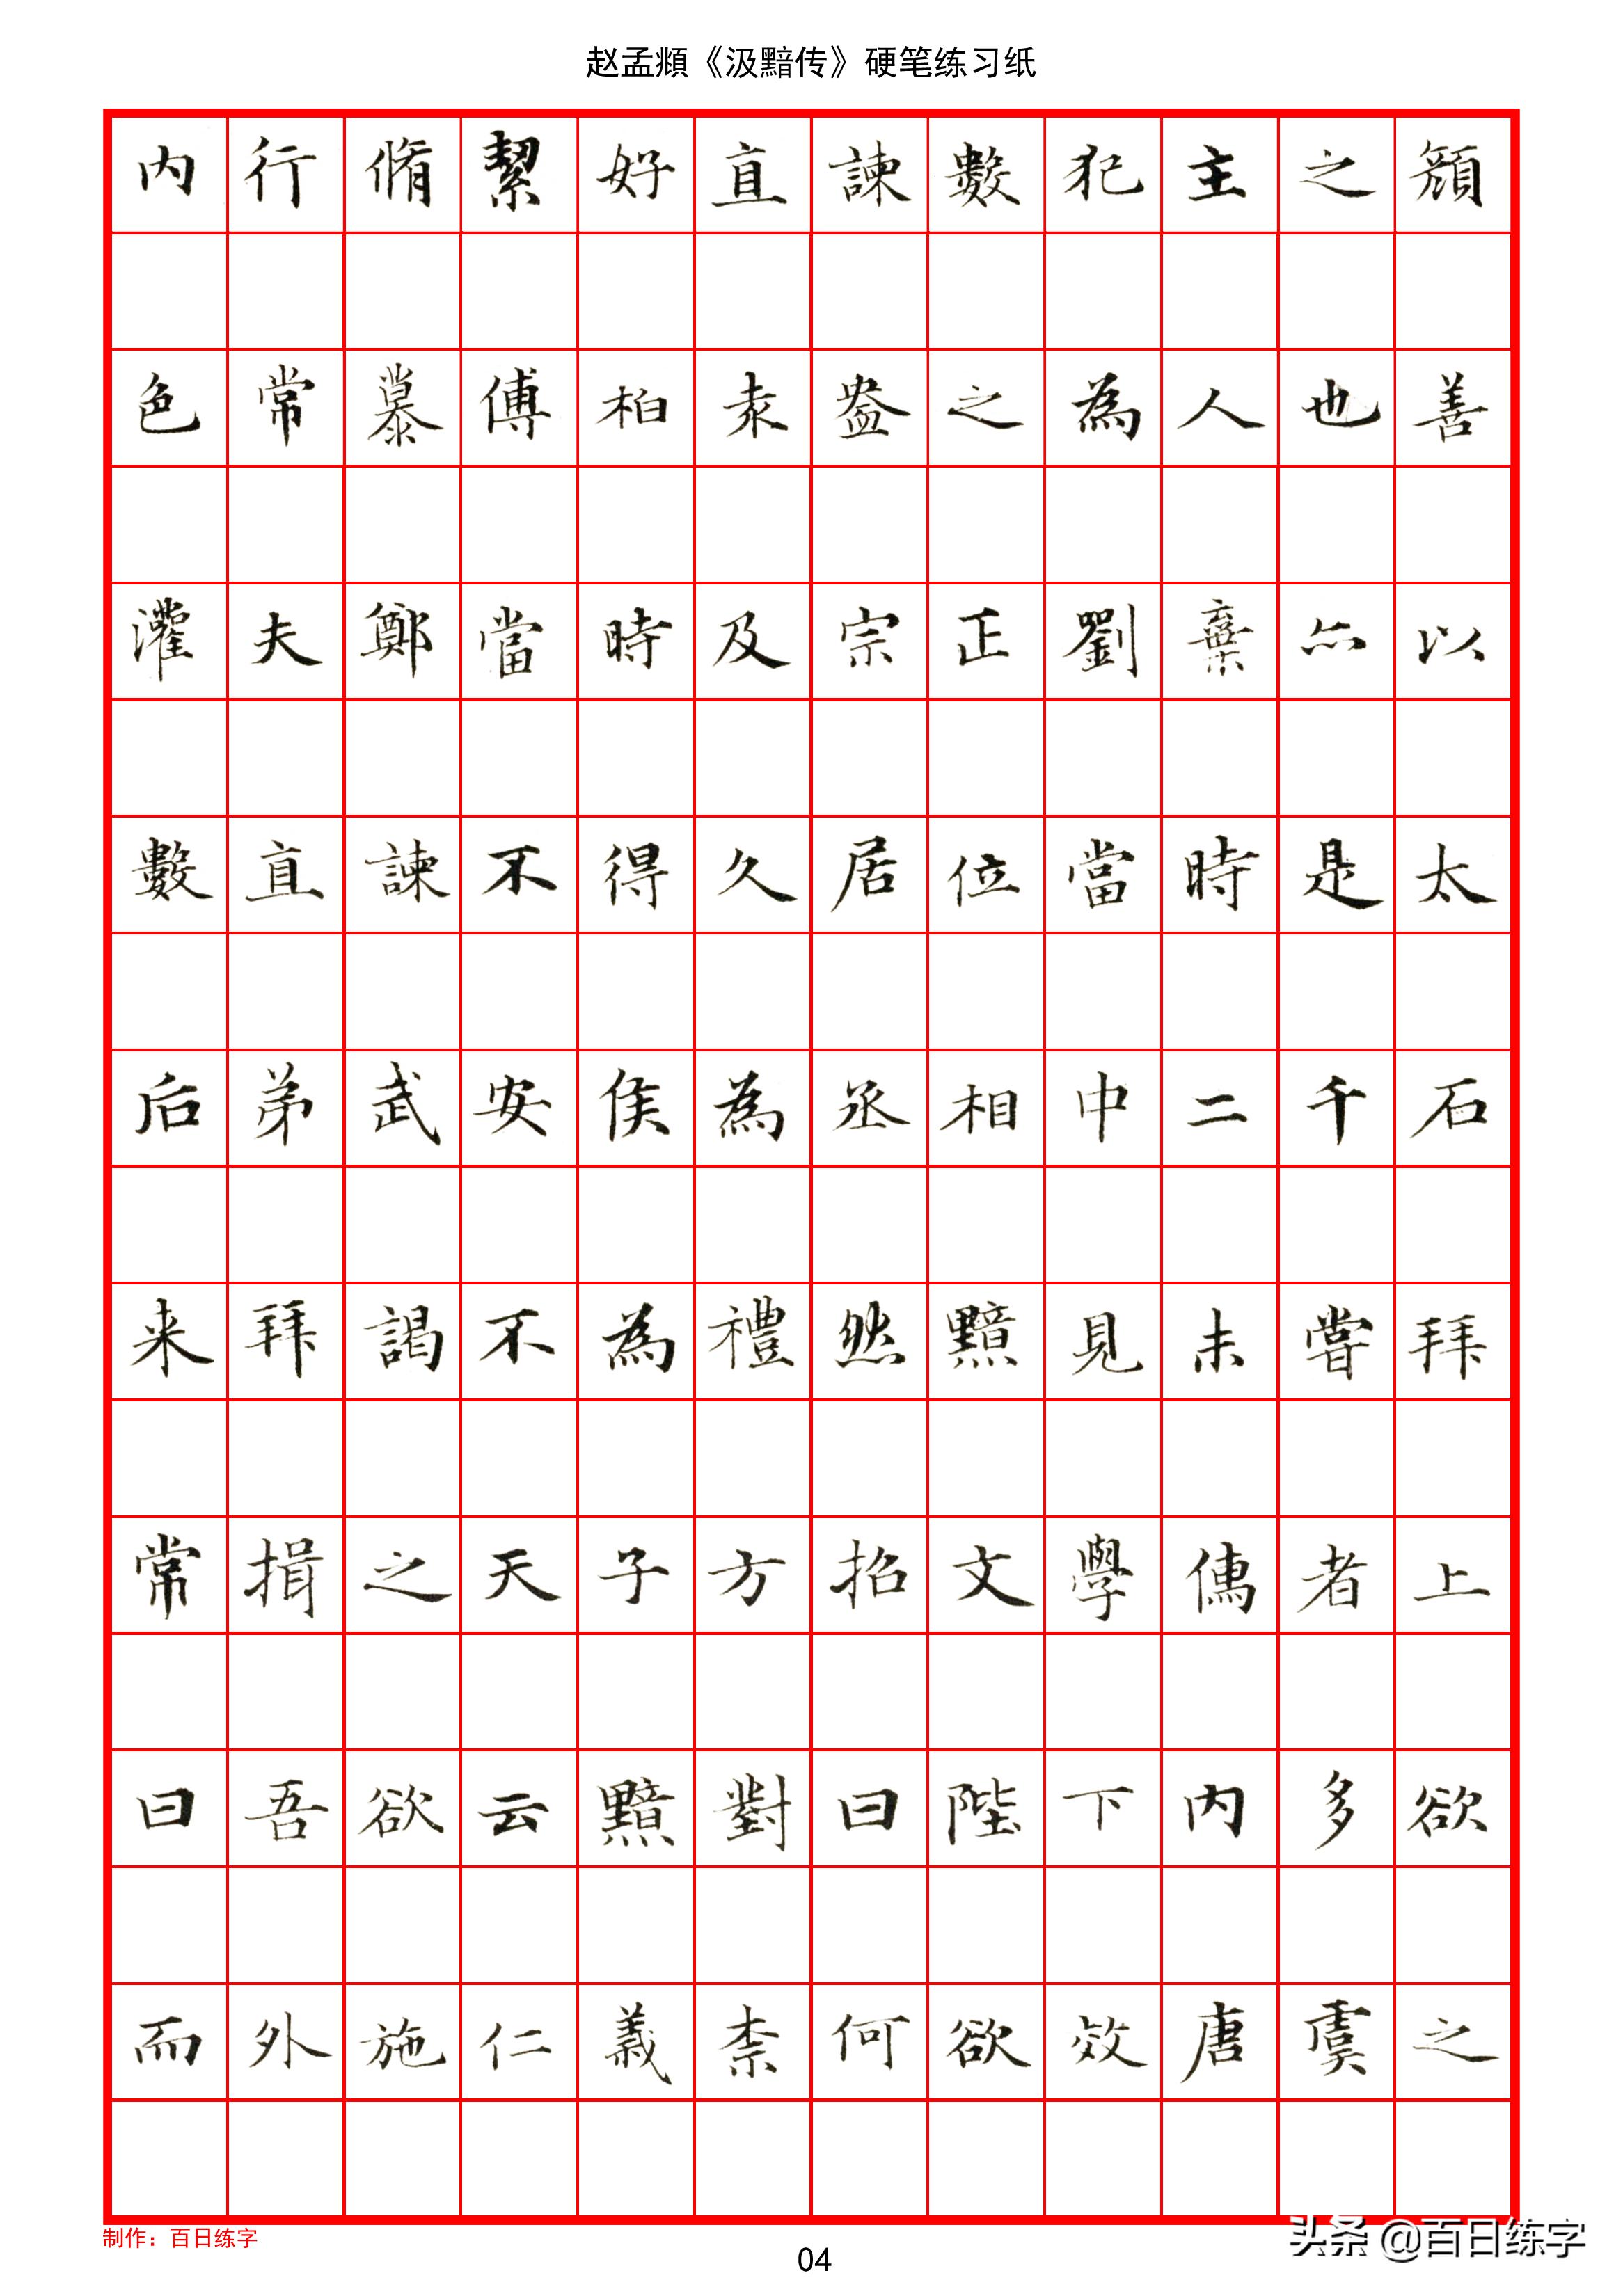 赵孟頫《汲黯传》硬笔练习纸
内行脩絜好直諫數犯主之顔
色常慕傅柏袁盎之為人也善
灌夫鄭當時及宗正劉棄亦以
數直諫不得久居位當時是太
后弟武安侯為丞相中二千石
来拜謁不為禮然黯見未嘗拜
常揖之天子方招文學儒者上
曰吾欲云黯對曰陛下内多欲
而外施仁義柰何欲效唐虞之
制作：百日练字
04
头条 @百日练字